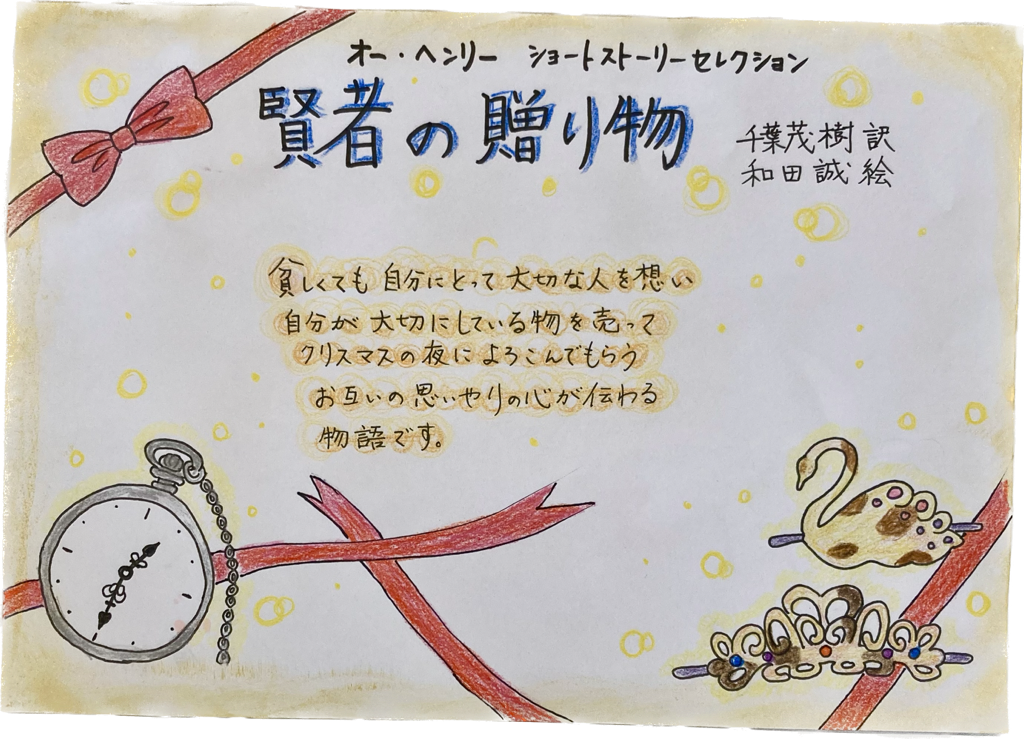 オー・ヘンリー ショートストーリーセレクション
賢者の贈り物
千葉茂樹 訳
和田誠 絵
貧しくても自分にとって大切な人を想い
自分が大切にしている物を売って
クリスマスの夜によろこんでもらう
お互いの思いやりの心が伝わる
物語です。